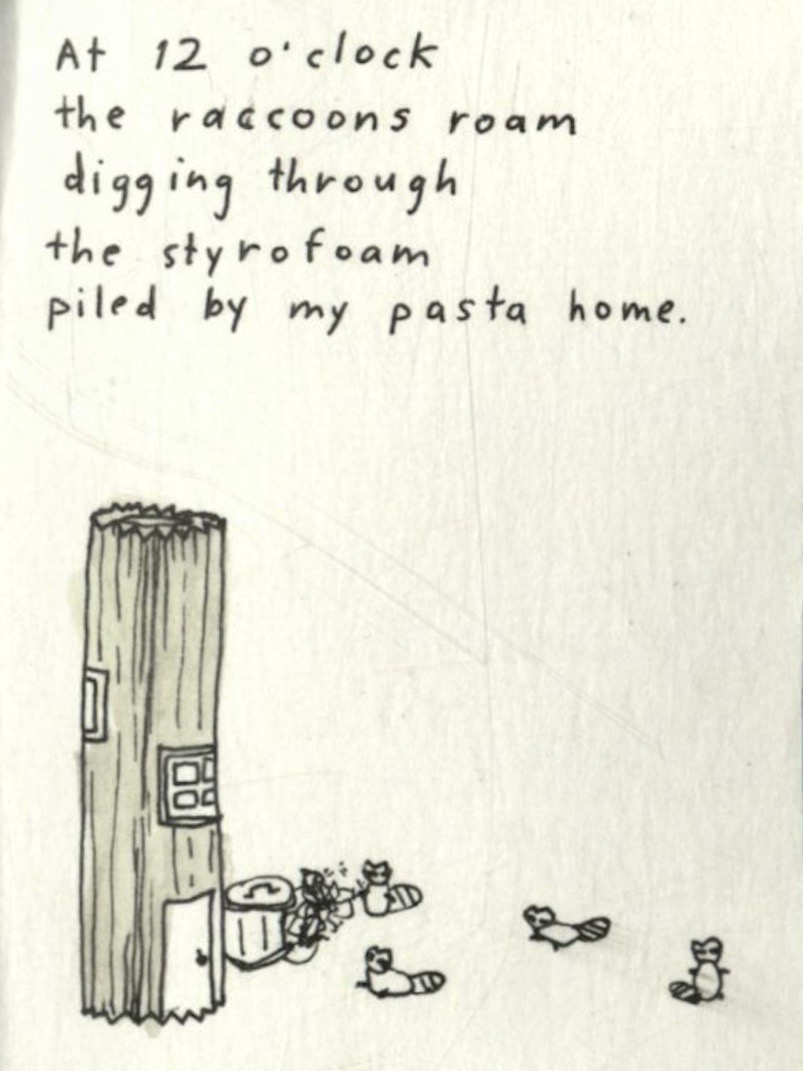 At 12 o'clock
the raccoons roam
digging through
the styrofoam
piled by my pasta home.